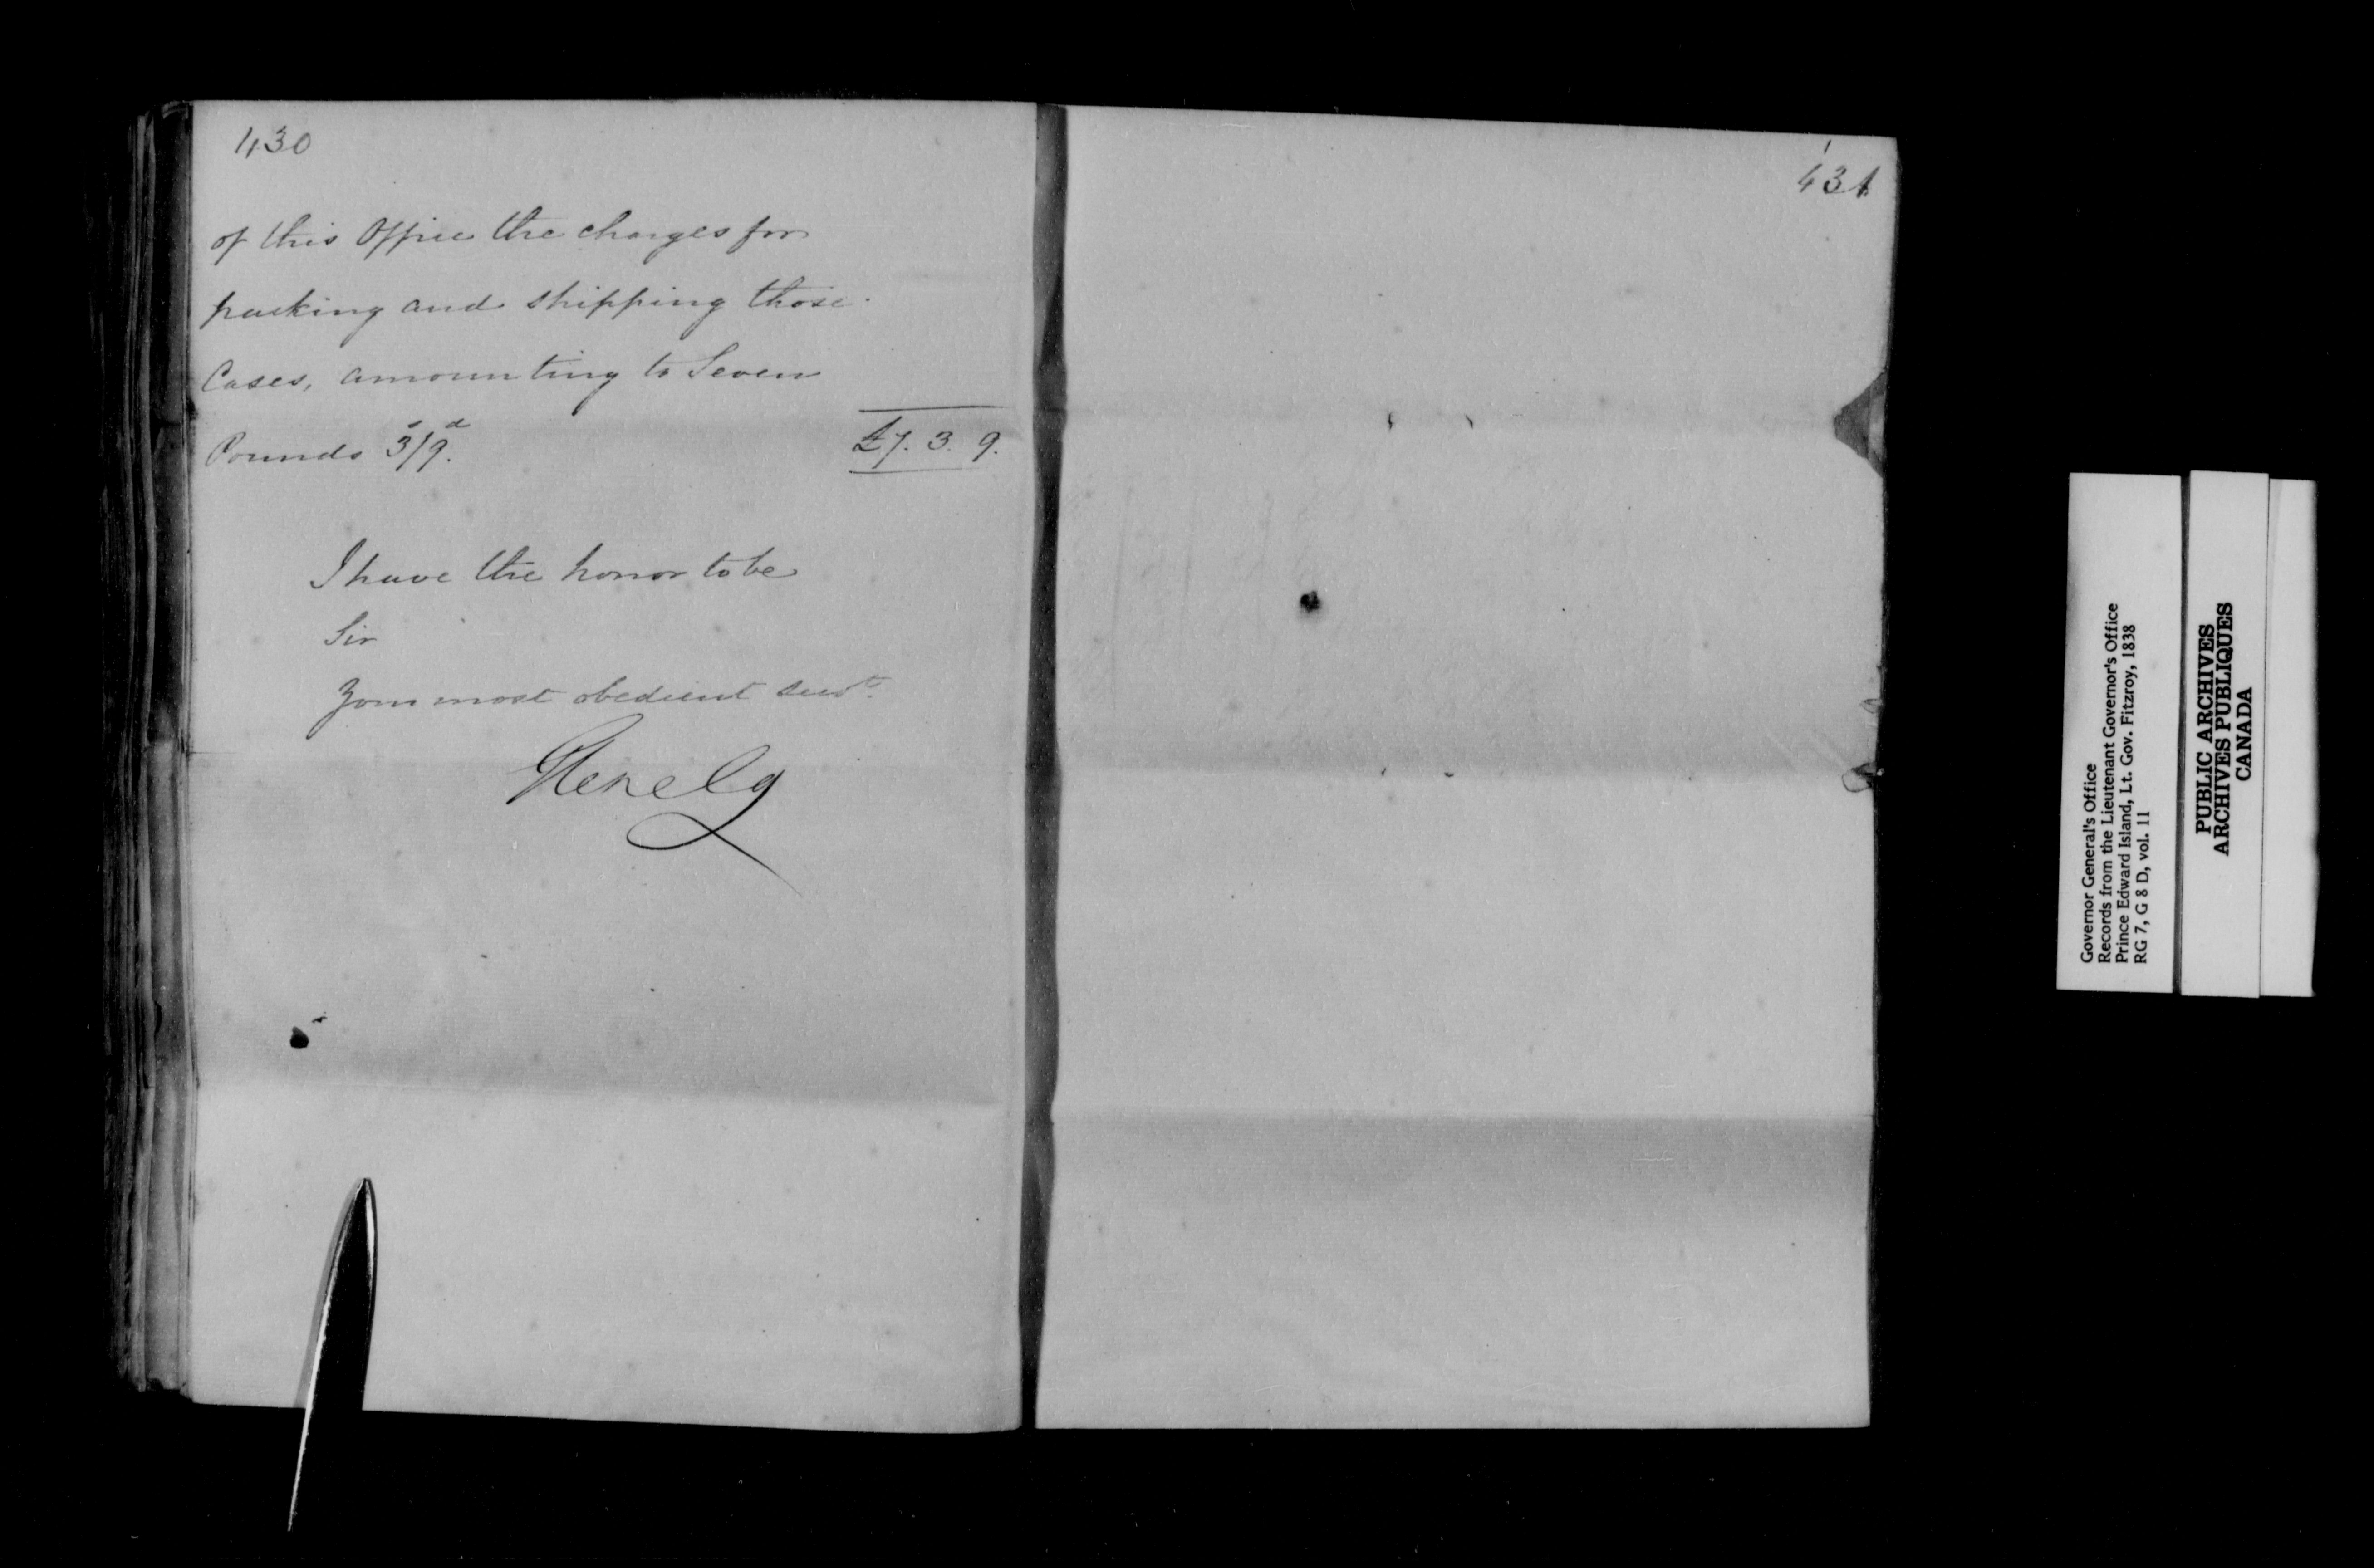 430
of this Office the charges for
packing and shipping those
Cases, amounting to Seven
Pounds 3s/9d. £7. 3. 9.
I have the honor to be
Sir
Your most obedient servt.
Glenelg
431
Governor General's Office
Records from the Lieutenant Governor's Office
Prince Edward Island, Lt. Gov. Fitzroy, 1838
RG 7, G 8 D, vol. 11
PUBLIC ARCHIVES
ARCHIVES PUBLIQUES
CANADA